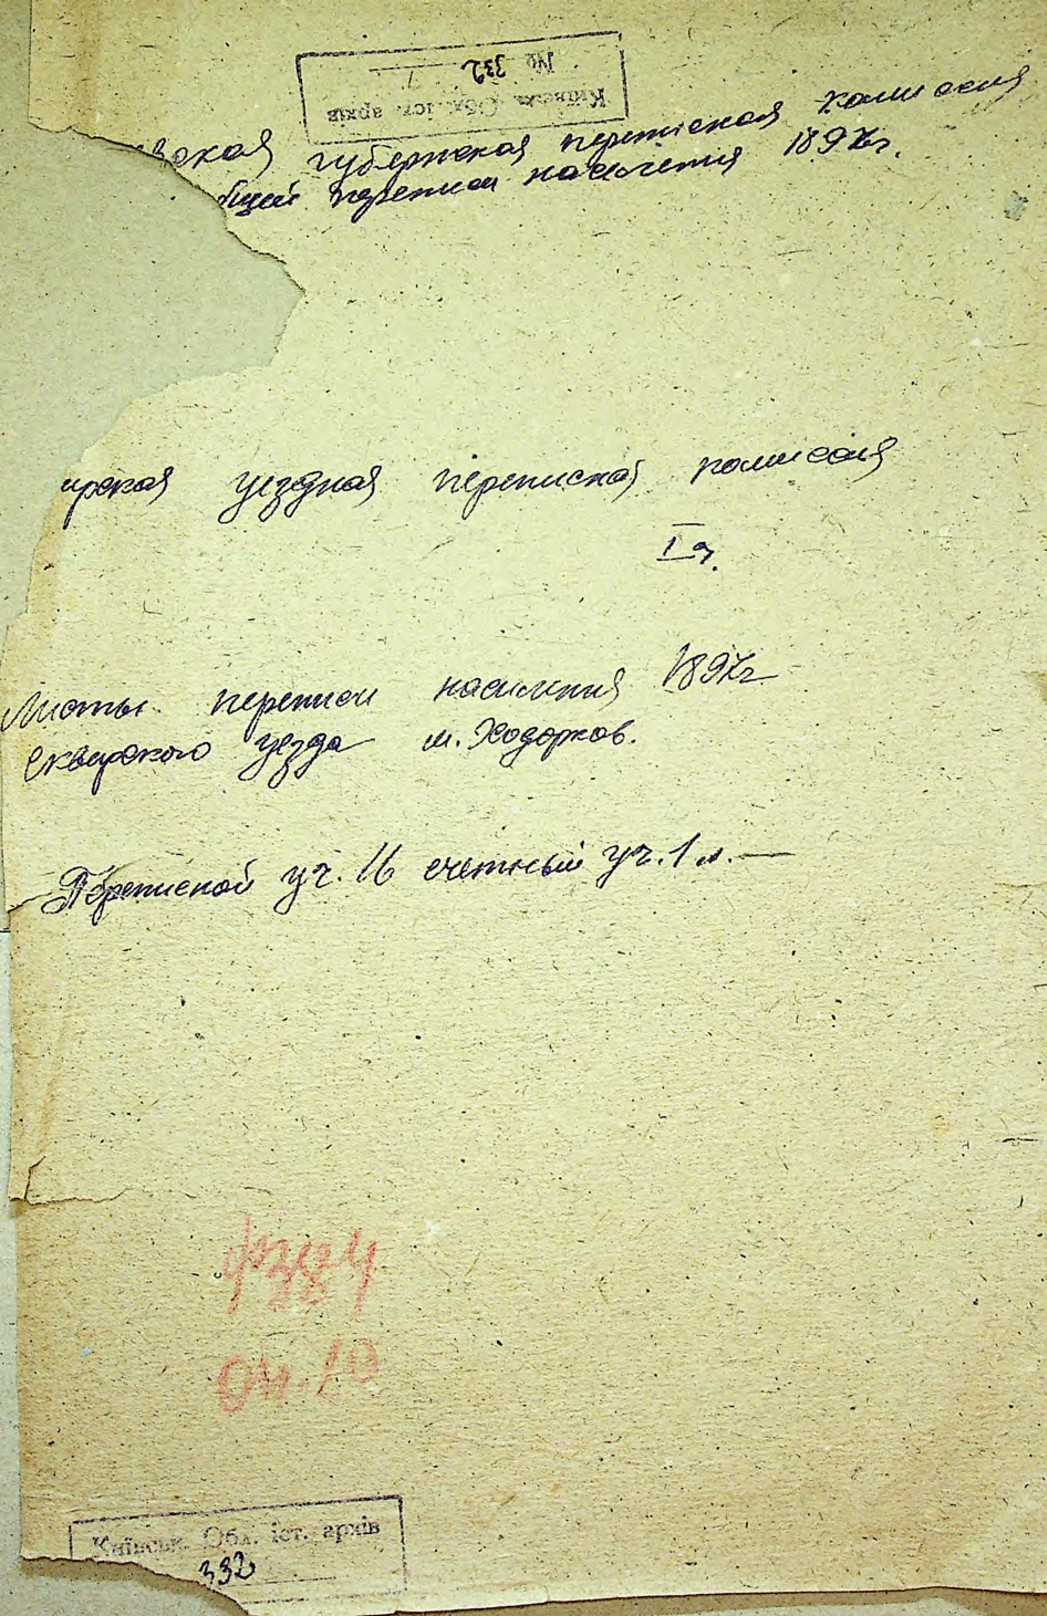 Київськ. Обл. іст. архів
№ 332
евская губернская переписная комиссия
бщей переписи населения 1897г.
ирская уездная переписная комиссия
I э.
Листы переписи населения 1897г
Сквирского уезда м. Ходорков.
Переписной уч. 16 счетный уч. 1 л. —
ф 384
оп. 10
Київськ. Обл. іст. архів
332